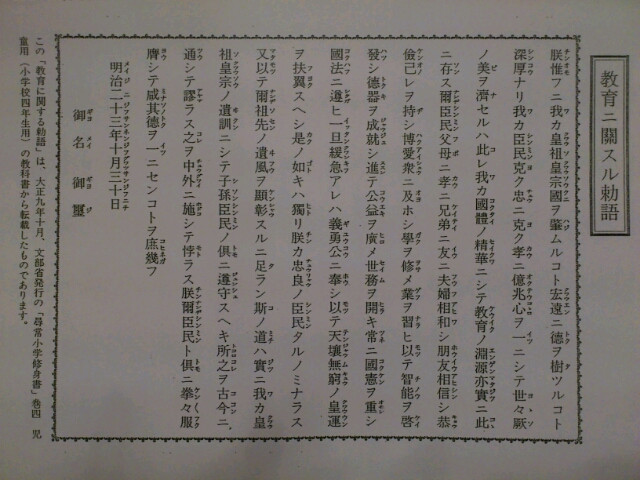 教育ニ關スル勅語
朕惟フニ我カ皇祖皇宗國ヲ肇ムルコト宏遠ニ德ヲ樹ツルコト
深厚ナリ我カ臣民克ク忠ニ克ク孝ニ億兆心ヲ一ニシテ世々厥
ノ美ヲ濟セルハ此レ我カ國體ノ精華ニシテ教育ノ淵源亦實ニ此
ニ存ス爾臣民父母ニ孝ニ兄弟ニ友ニ夫婦相和シ朋友相信シ恭
儉己レヲ持シ博愛衆ニ及ホシ學ヲ修メ業ヲ習ヒ以テ智能ヲ啓
發シ德器ヲ成就シ進テ公益ヲ廣メ世務ヲ開キ常ニ國憲ヲ重シ
國法ニ遵ヒ一旦緩急アレハ義勇公ニ奉シ以テ天壤無窮ノ皇運
ヲ扶翼スヘシ是ノ如キハ獨リ朕カ忠良ノ臣民タルノミナラス
又以テ爾祖先ノ遺風ヲ顯彰スルニ足ラン斯ノ道ハ實ニ我カ皇
祖皇宗ノ遺訓ニシテ子孫臣民ノ俱ニ遵守スヘキ所之ヲ古今ニ
通シテ謬ラス之ヲ中外ニ施シテ悖ラス朕爾臣民ト俱ニ拳々服
膺シテ咸其德ヲ一ニセンコトヲ庶幾フ
明治二十三年十月三十日
御名御璽
この「教育に関する勅語」は、大正九年十月、文部省発行の「尋常小学修身書」巻四 児
童用(小学校四年生用)の教科書から転載したものであります。